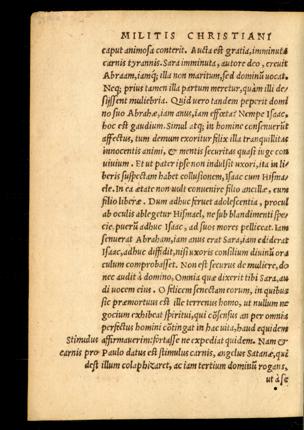 MILITIS CHRISTIANI
caput animosa conterit. Aucta est gratia, imminuta
carnis tyrannis. Sara imminuta, autore deo, crevit
Abraam, iamq; illa non maritum, sed dominũ vocat.
Neq; prius tamen illa partum meretur, quàm illi de/
sijssent muliebria. Quid vero tandem peperit domi
no suo Abrahæ, iam anus, iam effœta? Nempe Isaac,
hoc est gaudium. Simul atq; in homine consenuerũt
affectus, tum demum exoritur filix illa tranquillitas
innocentis animi, & mentis securitas quasi iuge con
uiuium. Et ut pater ipse non indulsit uxori, ita in li/
beris suspectam habet collusionem, Isaac cum Hisma/
ele. In ea ætate non uult convenire filio ancillæ, cum
filio liberæ. Dum adhuc feruet adolescentia, procul
ab oculis ablegetur Hismael, ne sub blandimenti spe/
cie, puerũ adhuc Isaac, ad suos mores pelliceat. Iam
senuerat Abraham, iam anus erat Sara, iam ediderat
Isaac, adhuc diffidit, nisi uxoris consilium diuinũ ora
culum comprobasset. Non est securus de muliere, do
nec audit à domino, Omnia quæ dixerit tibi Sara, au
di uocem eius. O filicem senectam eorum, in quibus
sic præmortuus est ille terrenus homo, ut nullum ne
gocium exhibeat spiritui, qui cõsensus an per omnia
perfectus homini cõtingat in hac uita, haud equidem
Stimulus affirmauerim: fortasse ne expediat quidem. Nam &
carnis pro Paulo datus est stimulus carnis, angelus Satanæ, qui
dest illum colaphizaret, ac iam tertium dominũ rogans,
ut à se